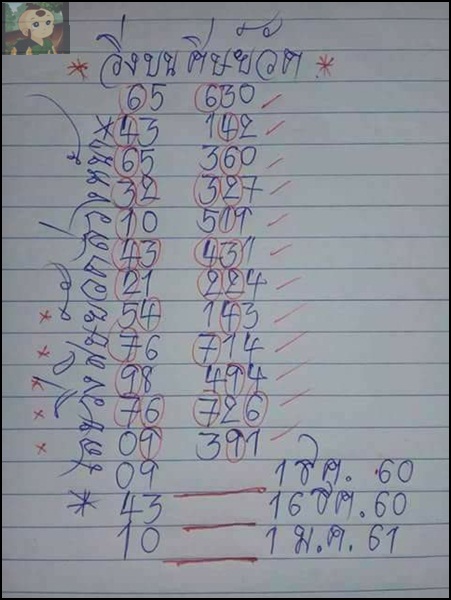 * วิ่งบน ศิษย์วัด *
65 630
43 142
65 360
32 327
10 509
43 431
21 224
54 143
76 714
98 494
76 726
09 391
09 1 ธ.ค. 60
43 16 ธ.ค. 60
10 1 ม.ค. 61